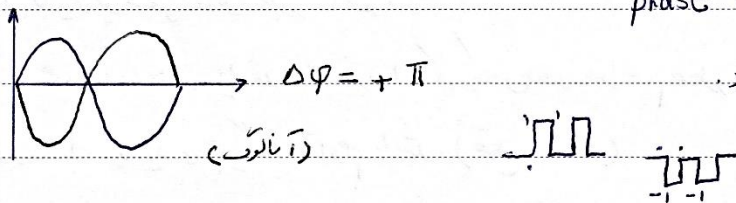 phase
Δφ = + π
(آنالوگ)
1 1
0
0 0
-1 -1